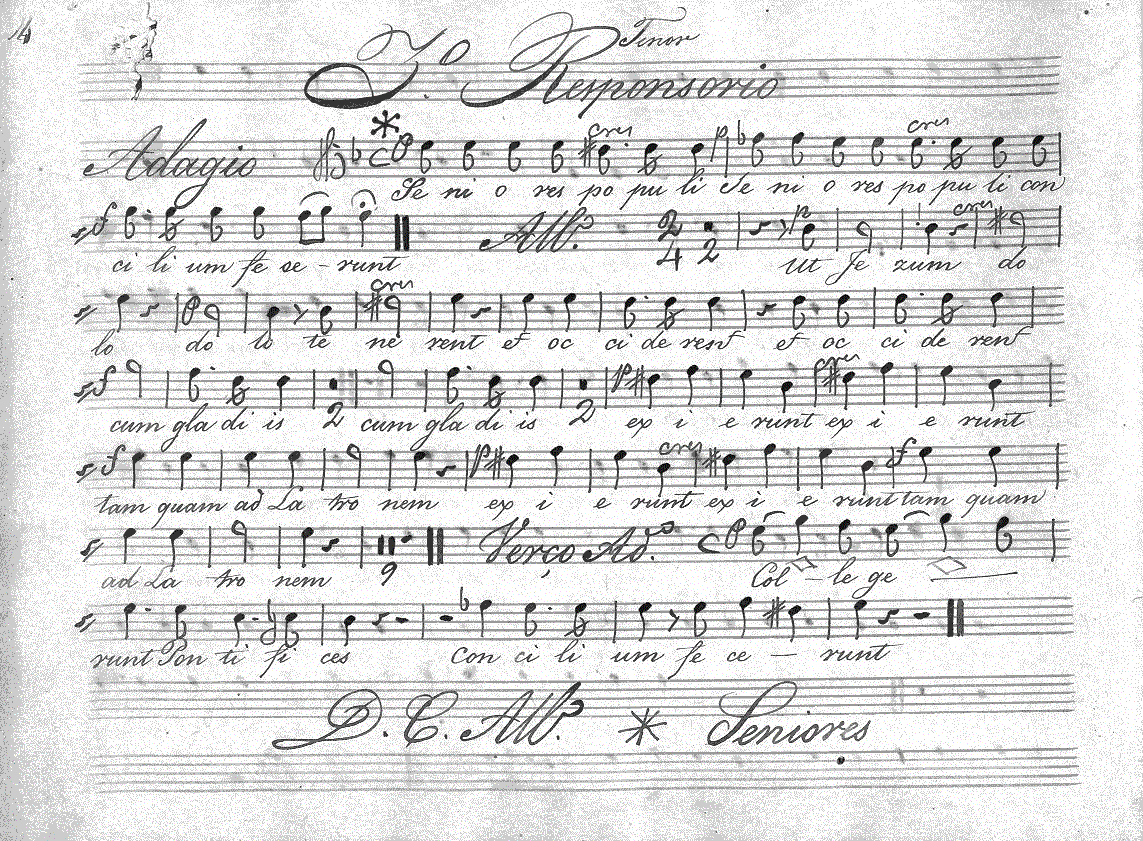 14
Tenor
7.º Responsorio
Adagio cres p cres
Se ni o res po pu li Se ni o res po pu li con
f All.º 2/4 2 p cres
ci li um fe se - runt Ut Je zum do
cres
lo do lo te ne rent et oc ci de rent et oc ci de rent
f 2 2 p cres
cum gla di is 2 cum gla di is 2 ex i e runt ex i e runt
f p cres f
tam quam ad La tro nem ex i e runt ex i e runt tam quam
9 Verço Ad.º
ad La tro nem Col - le ge
runt Pon ti fi ces Con ci li um fe ce - runt
D. C. All.º Seniores